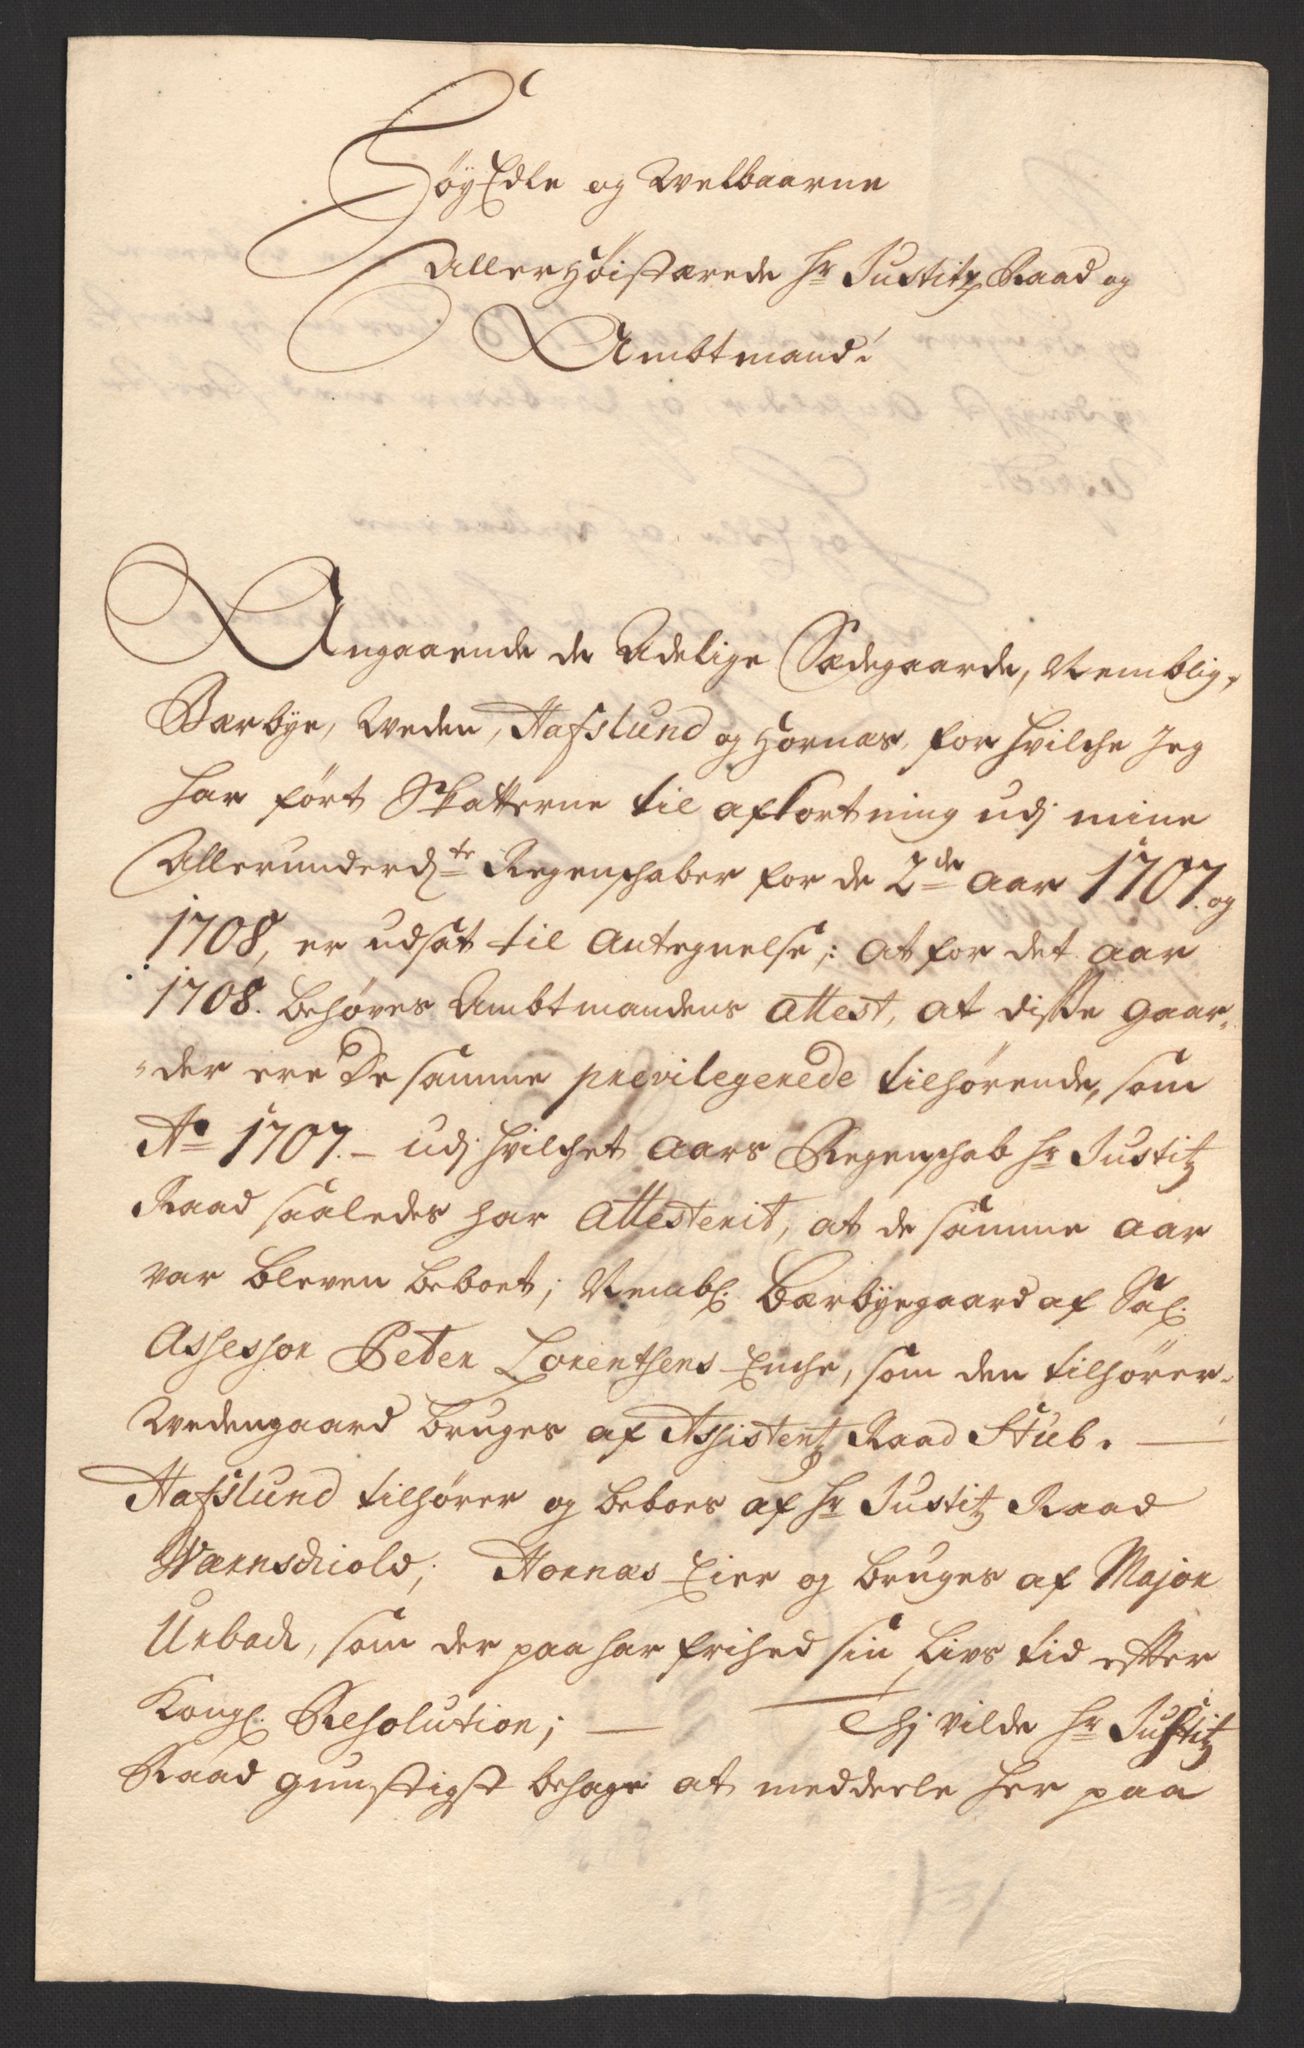 HøyEdle og Welbaarne
Allerhøistærede Hr Justitz Raad og
Ambtmand!
Angaaende de Adelige Sædegaarde, Nemblig,
Bærbye, Weden, Hafslund og Hornæs, for hvilche Jeg
har ført Skatterne til afkortning udj mine
Allerunderdte Regenschaber for de 2de aar 1707. og
1708, er udsat til Antegnelse; at for det aar
1708. behøves Ambtmandens Attest, at disse gaar-
der ere De samme previlegerede tilhørende, som
Ao 1707. - udj hvilchet aars Regenschab Hr Justitz
Raad saaledes har Attesterit, at de samme aar
var bleven beboet; Nembl. Bærbyegaard af Sal.
Assessor Peter Lorentsens Enche, som den tilhører.
Wedengaard bruges af Assistentz Raad Stub. —
Hafslund tilhører og beboes af Hr Justitz Raad
Wærnschiold; Hornæs Eier og bruges af Major
Urbach, som der paa har frihed sin Livs tid efter
Kongl. Resolution; — Thj vilde Hr Justitz
Raad gunstigst behage at meddeele her paa